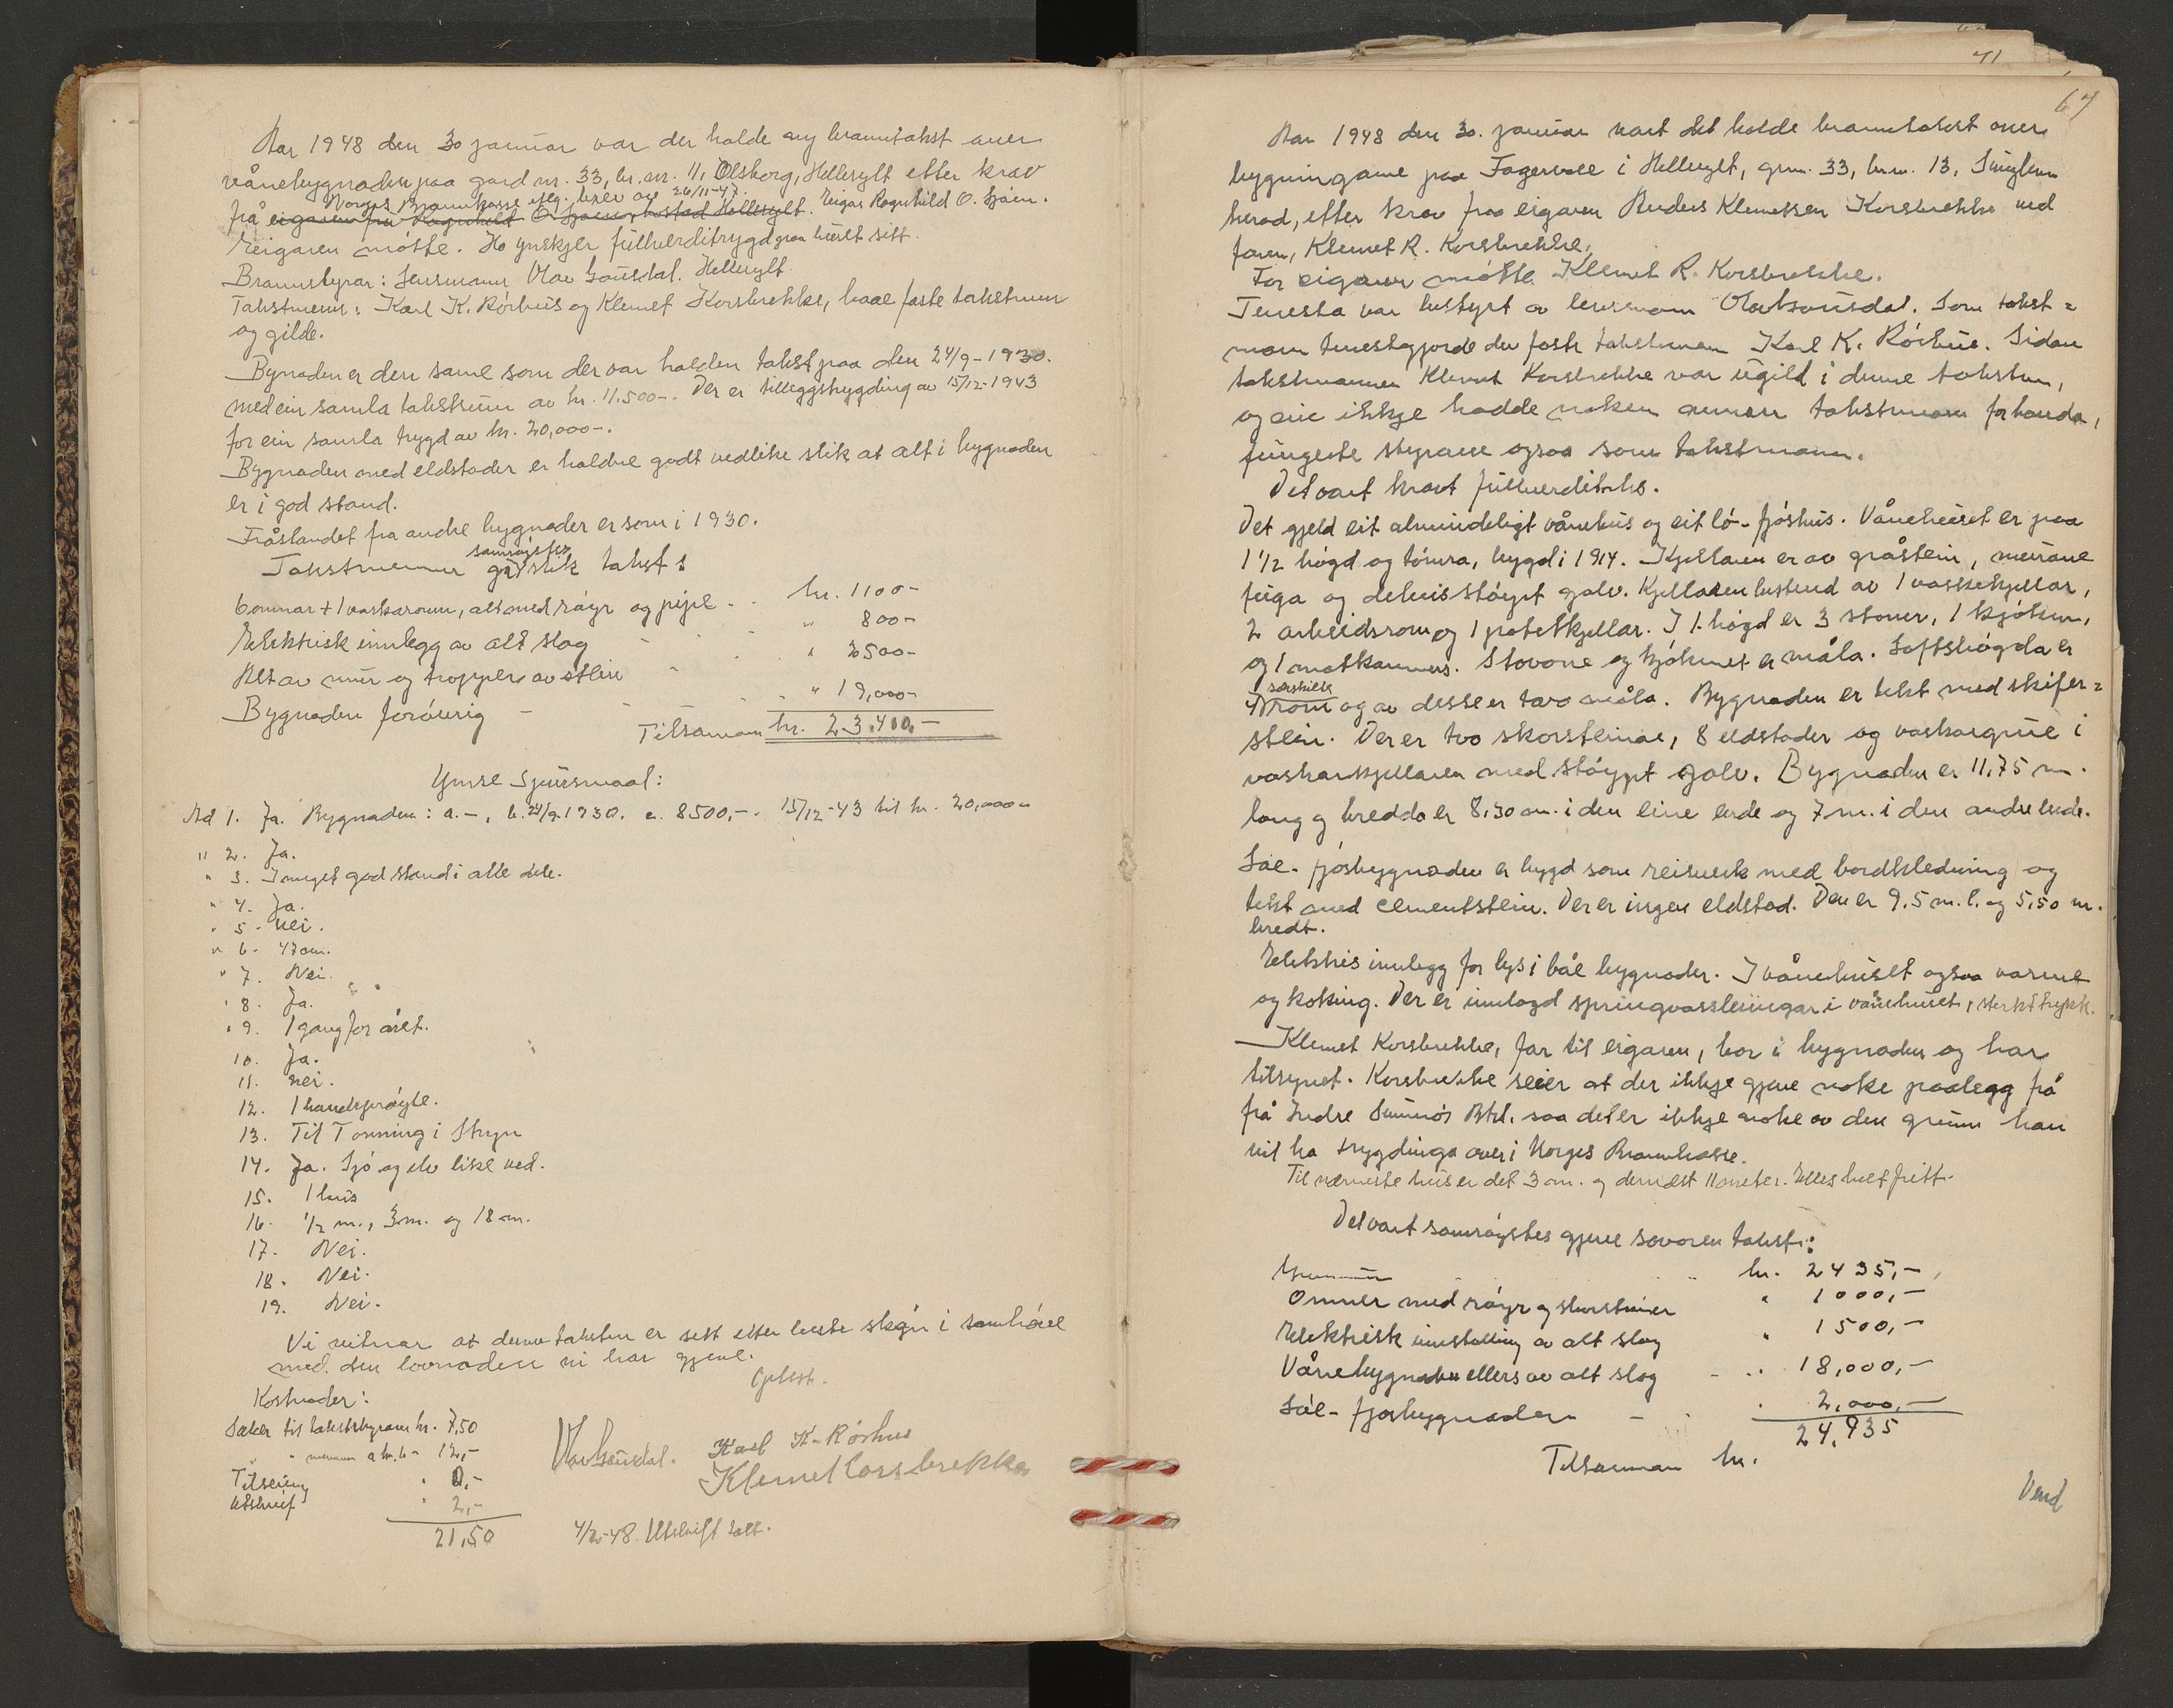 Aar 1948 den 30 januar var der halde ny branntakst over
vånebygnaden paa gard nr. 33, br.nr. 11, Olsborg, Hellesylt etter krav
Norges Brannkasse iflg. brev av 26/11-47.
frå eigaren fru Ragnhild O. Sjåen, bustad Hellesylt. Eigar Ragnhild O. Sjåen.
Eigaren møtte. Ho ynskjer fullverditrygd paa huset sitt.
Brannstyrar: Lensmann Olav Gausdal. Hellesylt.
Takstmenn: Karl K. Rörhus og Klemet Korsbrekke, baae faste takstmenn
og gilde.
Bygnaden er den same som der var halden takst paa den 24/9-1930.
med ein samla takstsum av kr. 11.500-. Der er tilleggstrygding av 15/12-1943
for ein samla trygd av kr. 20,000-.
Bygnaden med eldstader er haldne godt vedlike slik at alt i bygnaden
er i god stand.
Fråstandet fra andre bygnader er som i 1930.
samrøystes
Takstmennene gav slik takst:
6 omnar + 1 vaskaromn, alt med røyr og pipe - . kr. 1100-
Elektrisk innlegg av alt slag - . . " 800-
Alt av mur og tropper av stein - . " 2500-
Bygnaden forøvrig - - . . " 19,000-
Tilsaman kr. 23.400,-
Ymse Spursmaal:
Ad 1. Ja. Bygnaden: a. -, b. 24/9.1930. c. 8500,-. 15/12-43 til kr. 20,000-
" 2. Ja.
" 3. I meget god stand i alle dele.
" 4. Ja.
" 5. Nei.
" 6. 47 om.
" 7. Nei.
" 8. Ja.
" 9. 1 gang for året.
10. Ja.
11. Nei.
12. 1 handsprøyte.
13. Til Tonning i Stryn
14. Ja. Sjø og elv like ved.
15. 1 hus
16. 1/2 m., 3 m. og 18 m.
17. Nei.
18. Nei.
19. Nei.
Vi vitnar at denne taksten er sett etter beste skjøn i samhøve
med den lovnaden vi har gjeve.
Opplest.
Kostnader:
Saker til takststyraren kr. 7,50
" " mennene a kr. 6- 12,-
Tilseiing " 0,-
Utskrift " 2,-
21,50
Olav Gausdal. Karl K. Rörhus
Klemet Korsbrekke
4/2-48. Utskrift sendt.
67
Aar 1948 den 30. januar vart det halde branntakst over
bygningane paa Fagervoll i Hellesylt, gnr. 33, bnr. 13, Sunnylven
herad, etter krav fraa eigaren Anders Klemetsen Korsbrekke ved
faren, Klemet R. Korsbrekke.
For eigaren møtte Klemet R. Korsbrekke.
Tenesta var bestyrt av lensmann Olav Gausdal. Som takst=
mann tenestgjorde den faste takstmann Karl K. Rörhus. Sidan
takstmannen Klemet Korsbrekke var ugild i denne taksten,
og ein ikkje hadde noken annan takstmann for handa,
fungerte styraren ogsaa som takstmann.
Det vart kravt fullverditaks.
Det gjeld eit almindeligt vånehus og eit lö-fjöshus. Vånehuset er paa
1 1/2 högd og tömra, bygd i 1914. Kjellaren er av gråstein, murane
fuga og delvis støypt golv. Kjellaren bestend av 1 vaskekjellar,
2 arbeidsrom og 1 potetkjellar. I 1. högd er 3 stover, 1 kjøken,
og 1 matkammers. Stovone og kjøkenet er måla. Loftshøgda er
særskilte
4 rom og av desse er tvo måla. Bygnaden er tekt med skifer=
stein. Der er tvo skorsteinar, 8 eldstader og vaskargrue i
vaskarkjellaren med støypt golv. Bygnaden er 11,75 m.
lang og bredda er 8,30 m. i den eine ende og 7 m. i den andre ende.
Løe-fjøsbygnaden er bygd som reisverk med bordkledning og
tekt med cementstein. Der er ingen eldstad. Den er 9,5 m. l. og 5,50 m.
bredt.
Elektris innlegg for lys i båe bygnader. I vånehuset ogsaa varme
og koking. Der er innlagd springvassleiingar i vånehuset, sterkt trykk.
Klemet Korsbrekke, far til eigaren, bor i bygnaden og har
tilsynet. Korsbrekke seier at der ikkje gjeve noke paalegg på
frå Indre Sunnmør Btk. saa det er ikkje noke av den grunn han
vil ha trygdinga over i Norges Brannkasse.
Til nærmeste hus er det 3 m. og dernæst 11 meter. Elles heilt fritt.
Det vart samrøystes gjeve sovoren takst:
Grunnmur " kr. 2435,-
Omner med røyr og skorsteiner " 1000,-
Elektrisk innstalling av alt slag " 1500,-
Vånebygnaden ellers av alt slag - .. 18,000,-
Løe-fjøsbygnaden - " . 2,000,-
24,935
Tilsamman kr.
Vend